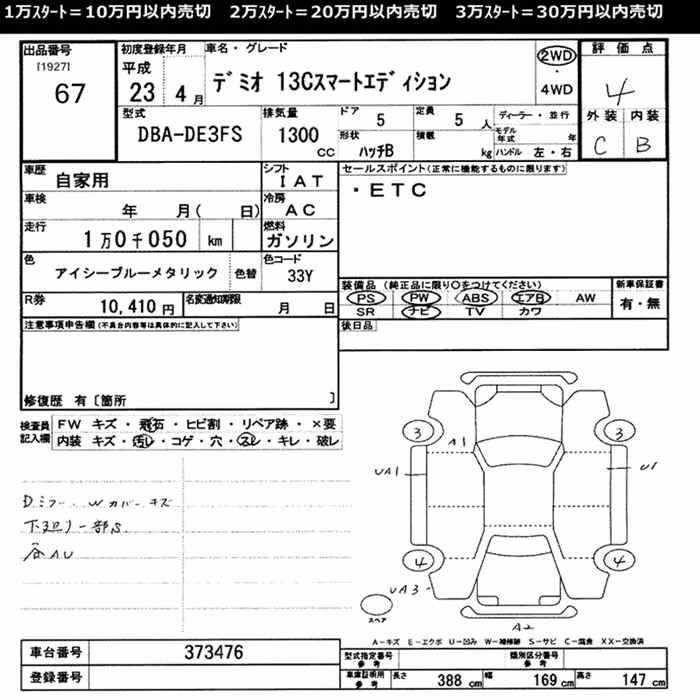 1万ｽﾀｰﾄ＝10万円以内売切 2万ｽﾀｰﾄ＝20万円以内売切 3万ｽﾀｰﾄ＝30万円以内売切
出品番号
[1927]
67
初度登録年月
平成
23 4 月
車名・グレード
デミオ 13Cスマートエディション
2WD
・
4WD
評価点
4
外装 内装
C B
型式
DBA-DE3FS
排気量
1300 cc
ドア 5
定員 5 人
形状 ハッチB
積載 kg
ディーラー・並行
モデル年式 年
ハンドル 左・右
車歴
自家用
シフト
IAT
車検
年 月( 日)
冷房
AC
走行
1万0千050 km
燃料
ガソリン
色
アイシーブルーメタリック
色替
色コード
33Y
R券 10,410 円
名変通知期限 月 日
セールスポイント(正常に機能するものに限ります)
・ETC
装備品 (純正品に限り○をつけてください)
PS PW ABS エアB AW
SR ナビ TV カワ
新車保証書
有・無
後日品
注意事項申告欄(不具合内容等は具体的に記入して下さい)
修復歴 有〔箇所 〕
検査員記入欄
FW キズ・飛石・ヒビ割・リペア跡・×要
内装 キズ・汚レ・コゲ・穴・スレ・キレ・破レ
Dミラー・Wカバーキズ
下廻り一部S
各AU
3
3
A1
UA1
U1
4
4
UA3
スペア
A2
A－キズ E－エクボ U－凹み W－補修跡 S－サビ C－腐食 XX－交換済
車台番号 373476
登録番号
型式指定番号 参考
類別区分番号 参考
車庫証明用 参考
長さ 388 cm
幅 169 cm
高さ 147 cm